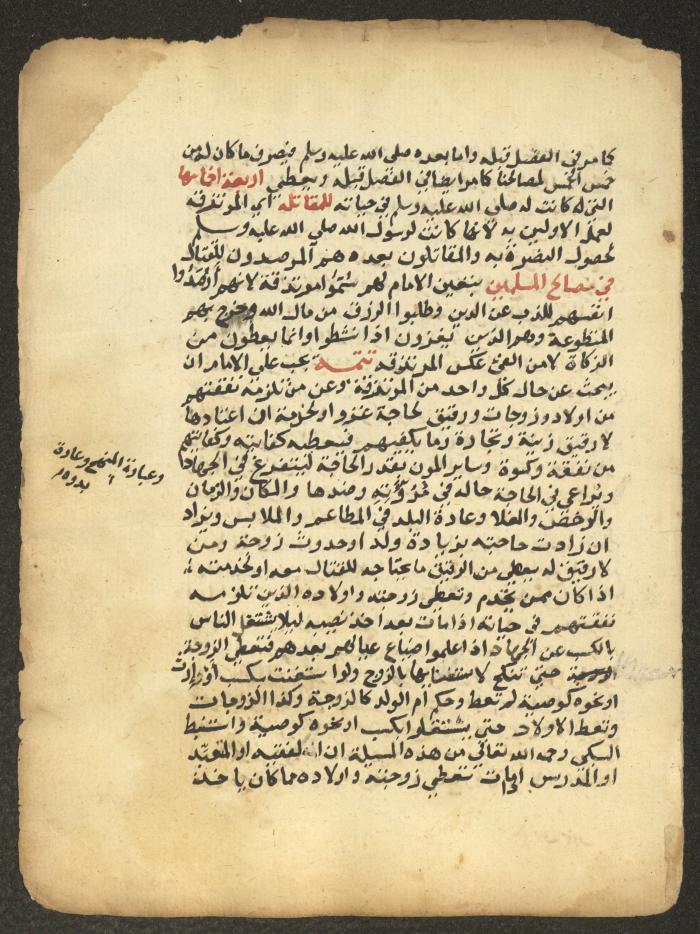 كما مر في الفصل قبله واما بعده صلى الله عليه وسلم فيصرف ما كان له من
خمس الخمس لمصالحنا كما مر ايضا في الفصل قبله ويعطى اربعة اخماسها
التي كانت له صلى الله عليه وسلم في حياته للمقاتلة اي المرتزقة
لعمل الاولين به لانها كانت لرسول الله صلى الله عليه وسلم
لحصول النصرة به والمقاتلون بعده هم المرصدون للقتال
في مصالح المسلمين بتعين الامام لهم سموا مرتزقة لانهم ارصدوا
انفسهم للذب عن الدين وطلبوا الرزق من مال الله وخرج بهم
المتطوعة وهم الذين يغزون اذا نشطوا وانما يعطون من
الزكاة لا من الفئ عكس المرتزقة تتمة يجب على الامام ان
يبحث عن حال كل واحد من المرتزقة وعن من تلزمه نفقتهم
من اولاد وزوجات ورقيق لحاجة غزو او لخدمة ان اعتادها
لا رقيق زينة وتجارة وما يكفيهم فيعطيه كفايته وكفايتهم
من نفقة وكسوة وساير المون بقدر الحاجة ليتفرغ في الجهاد
ويراعي في الحاجة حاله في مروته وضدها والمكان والزمان
والرخص والغلا وعادة البلد في المطاعم والملابس ويزاد
ان زادت حاجته بزيادة ولد او حدوث زوجة ومن
لا رقيق له يعطى من الرقيق ما يحتاجه للقتال معه او لخدمته
اذا كان ممن يخدم وتعطى زوجته واولاده الذين تلزمه
نفقتهم في حياته اذا مات بعد اخذ نصيبه ليلا يشتغل الناس
بالكسب عن الجهاد اذا علموا ضياع عيالهم بعدهم فتعطى الزوجة
حتى تنكح لاستغنايها بالزوج ولو استغنت بكسب او ارث
او نحوه كوصية لم تعط وحكم ام الولد كالزوجة وكذا الزوجات
وتعط الاولاد حتى يستقلوا بكسب او نحوه كوصية واستنبط
السبكي رحمه الله تعالى من هذه المسيلة ان الفقيه او المعيد
او المدرس اذا مات تعطى زوجته واولاده مما كان ياخذه
وعبارة المنهج وعادة
بدوه